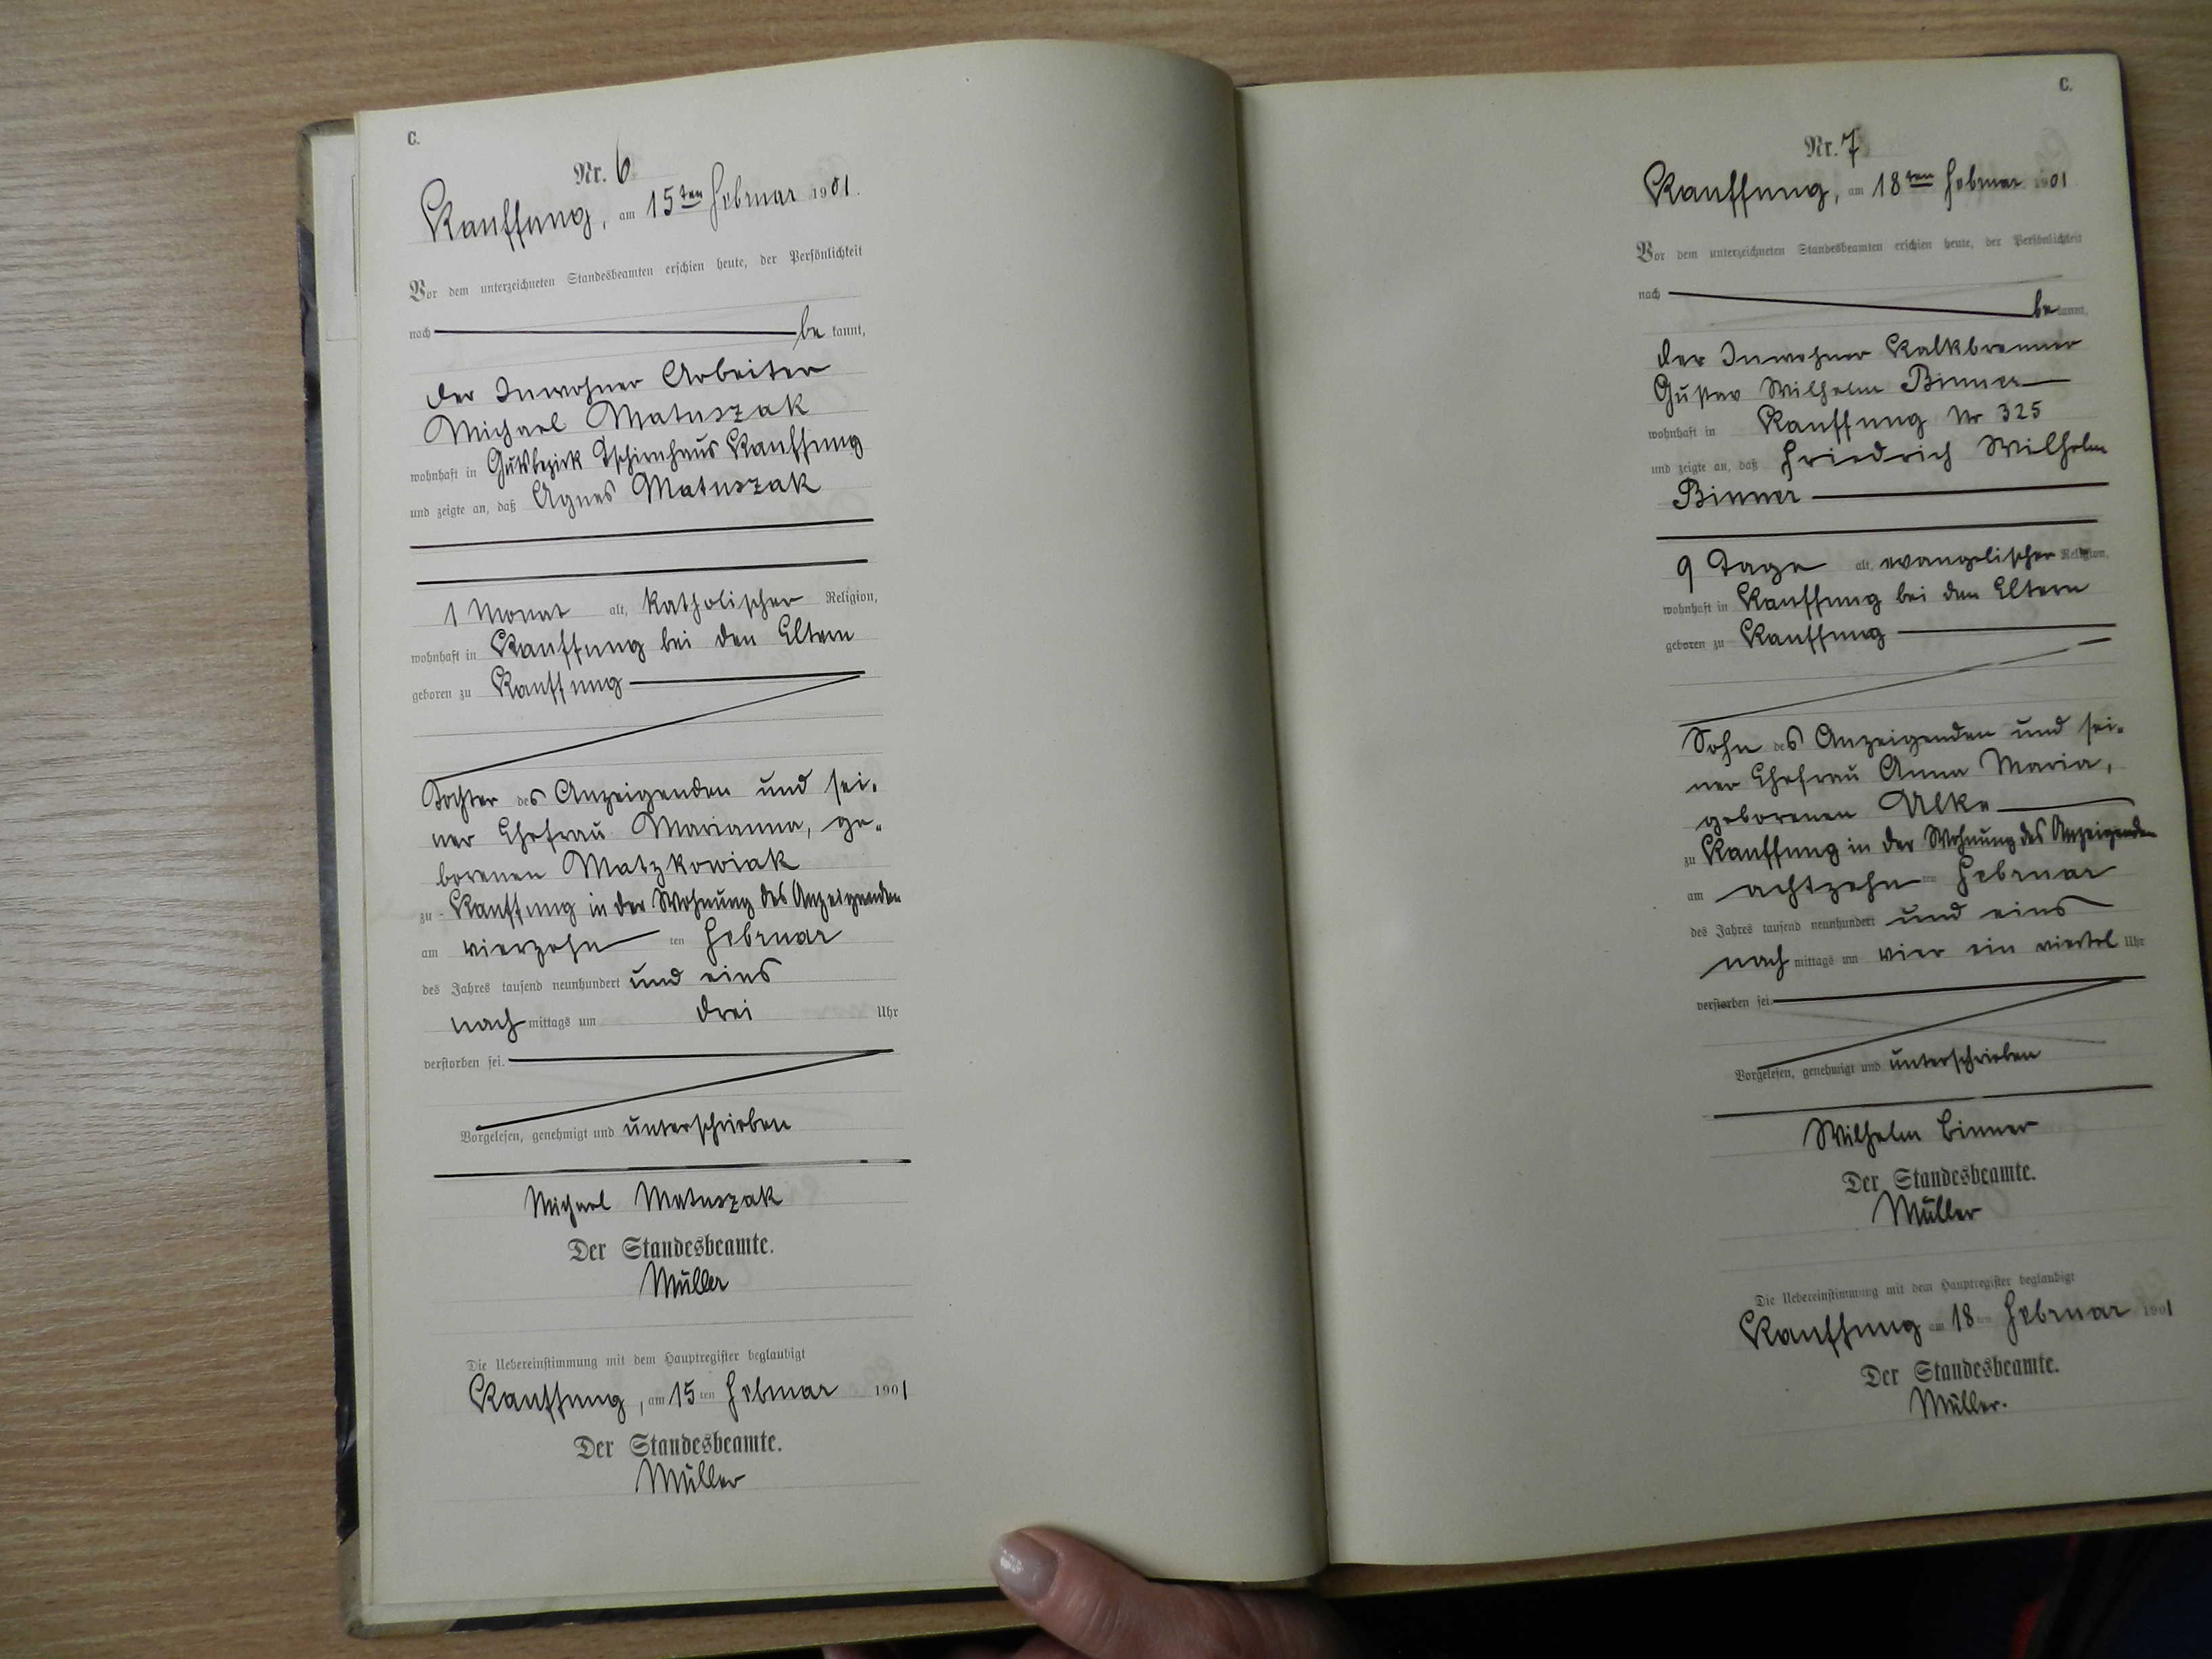 C.
Nr. 6
Kauffung, am 15ten Februar 1901.
Vor dem unterzeichneten Standesbeamten erschien heute, der Persönlichkeit
nach be kannt,
der Inwohner Arbeiter
Michael Matuszak
wohnhaft in Gutsbezirk Tschirnhaus Kauffung
und zeigte an, daß Agnes Matuszak
1 Monat alt, katholischer Religion,
wohnhaft in Kauffung bei den Eltern
geboren zu Kauffung
Tochter des Anzeigenden und sei-
ner Ehefrau Marianna, ge-
borenen Matzkowiak
zu Kauffung in der Wohnung des Anzeigenden
am vierzehn ten Februar
des Jahres tausend neunhundert und eins
nach mittags um drei Uhr
verstorben sei.
Vorgelesen, genehmigt und unterschrieben
Michael Matuszak
Der Standesbeamte.
Müller
Die Uebereinstimmung mit dem Hauptregister beglaubigt
Kauffung, am 15 ten Februar 1901
Der Standesbeamte.
Müller
C.
Nr. 7
Kauffung, am 18ten Februar 1901
Vor dem unterzeichneten Standesbeamten erschien heute, der Persönlichkeit
nach be kannt,
der Inwohner Kalkbrenner
Gustav Wilhelm Binner
wohnhaft in Kauffung Nr 325
und zeigte an, daß Friedrich Wilhelm
Binner
9 Tage alt, evangelischer Religion,
wohnhaft in Kauffung bei den Eltern
geboren zu Kauffung
Sohn des Anzeigenden und sei-
ner Ehefrau Anna Maria,
geborenen Ulke
zu Kauffung in der Wohnung des Anzeigenden
am achtzehn ten Februar
des Jahres tausend neunhundert und eins
nach mittags um vier ein viertel Uhr
verstorben sei.
Vorgelesen, genehmigt und unterschrieben
Wilhelm Binner
Der Standesbeamte.
Müller
Die Uebereinstimmung mit dem Hauptregister beglaubigt
Kauffung am 18 ten Februar 1901
Der Standesbeamte.
Müller.